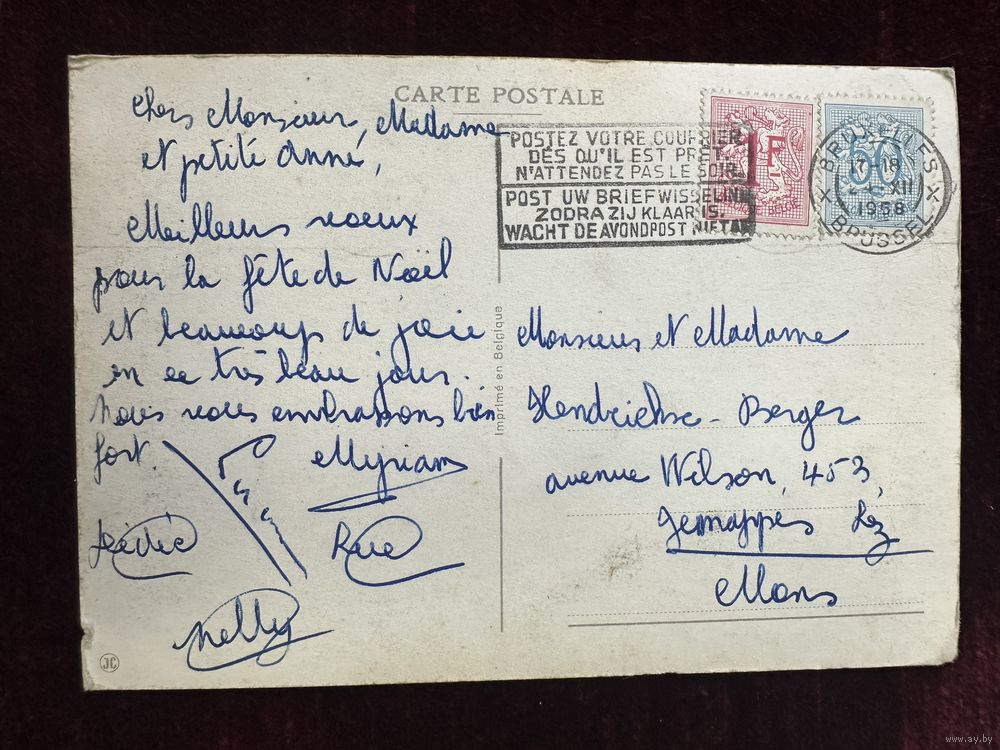 CARTE POSTALE
Chers Monsieur, Madame
et petite Anne,
Meilleurs voeux
pour la fête de Noël
et beaucoup de joie
en ce très beau jour.
Nous vous embrassons bien
fort.
Myriam
Rue
Nelly
JC
Imprimé en Belgique
POSTEZ VOTRE COURRIER
DÈS QU'IL EST PRÊT.
N'ATTENDEZ PAS LE SOIR.
POST UW BRIEFWISSELING
ZODRA ZIJ KLAAR IS.
WACHT DE AVONDPOST NIET AF
1F
50
BRUXELLES
17-18
XII
1958
BRUSSEL
Monsieur et Madame
Hendrickx - Berger
avenue Wilson, 453,
Jemappes Lez
Mons
www.ay.by